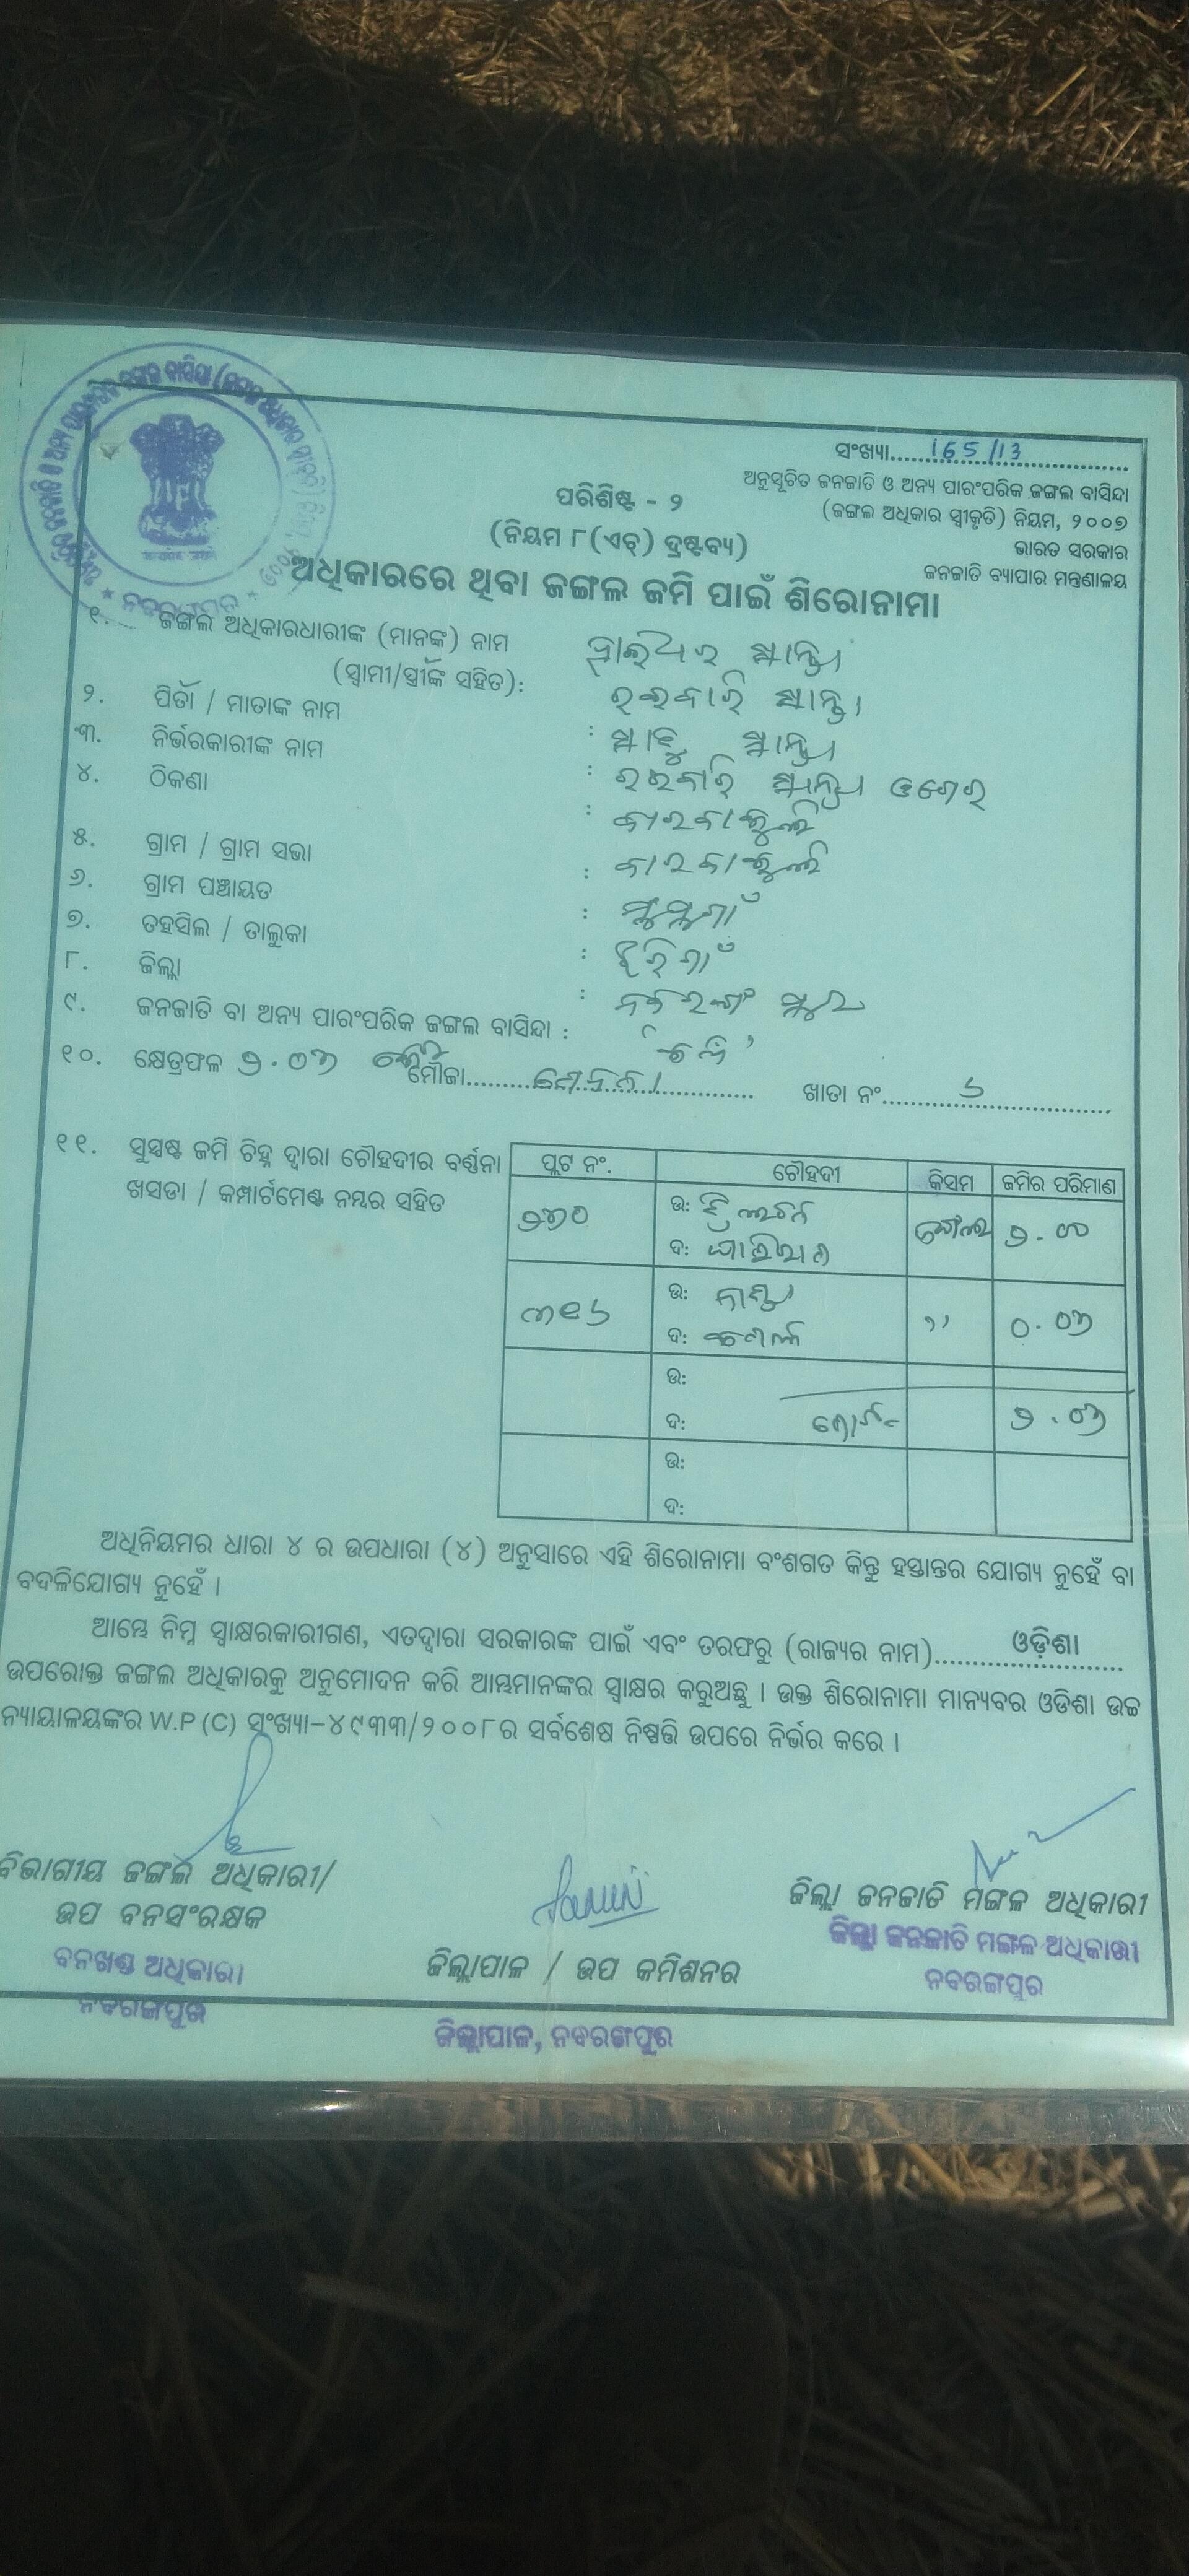 ସଂଖ୍ୟା......165/13......
ଅନୁସୂଚିତ ଜନଜାତି ଓ ଅନ୍ୟ ପାରଂପରିକ ଜଙ୍ଗଲ ବାସିନ୍ଦା
(ଜଙ୍ଗଲ ଅଧିକାର ସ୍ୱୀକୃତି) ନିୟମ, ୨୦୦୭
ଭାରତ ସରକାର
ଜନଜାତି ବ୍ୟାପାର ମନ୍ତ୍ରଣାଳୟ
ପରିଶିଷ୍ଟ - ୨
(ନିୟମ ୮(ଏଚ୍) ଦ୍ରଷ୍ଟବ୍ୟ)
ଅଧିକାରରେ ଥିବା ଜଙ୍ଗଲ ଜମି ପାଇଁ ଶିରୋନାମା
୧. ଜଙ୍ଗଲ ଅଧିକାରଧାରୀଙ୍କ (ମାନଙ୍କ) ନାମ
(ସ୍ୱାମୀ/ସ୍ତ୍ରୀଙ୍କ ସହିତ):
୨. ପିତା / ମାତାଙ୍କ ନାମ :
୩. ନିର୍ଭରକାରୀଙ୍କ ନାମ :
୪. ଠିକଣା :
୫. ଗ୍ରାମ / ଗ୍ରାମ ସଭା :
୬. ଗ୍ରାମ ପଞ୍ଚାୟତ :
୭. ତହସିଲ / ତାଲୁକା : ଝରିଗାଁ
୮. ଜିଲ୍ଲା : ନବରଙ୍ଗପୁର
୯. ଜନଜାତି ବା ଅନ୍ୟ ପାରଂପରିକ ଜଙ୍ଗଲ ବାସିନ୍ଦା :
୧୦. କ୍ଷେତ୍ରଫଳ ୨.୦୩ ମୌଜା............ ଖାତା ନଂ......୬......
୧୧. ସୁସ୍ପଷ୍ଟ ଜମି ଚିହ୍ନ ଦ୍ୱାରା ଚୌହଦୀର ବର୍ଣ୍ଣନା
ଖସଡା / କମ୍ପାର୍ଟମେଣ୍ଟ ନମ୍ବର ସହିତ
ପ୍ଲଟ ନଂ. ଚୌହଦୀ କିସମ ଜମିର ପରିମାଣ
୨୩୦ ଉ: ଜଙ୍ଗଲ ୨.୦୦
ଦ:
୩୧୬ ଉ: ,, ୦.୦୩
ଦ:
ଉ:
ଦ: ମୋଟ- ୨.୦୩
ଉ:
ଦ:
ଅଧିନିୟମର ଧାରା ୪ ର ଉପଧାରା (୪) ଅନୁସାରେ ଏହି ଶିରୋନାମା ବଂଶଗତ କିନ୍ତୁ ହସ୍ତାନ୍ତର ଯୋଗ୍ୟ ନୁହେଁ ବା
ବଦଳିଯୋଗ୍ୟ ନୁହେଁ ।
ଆମ୍ଭେ ନିମ୍ନ ସ୍ୱାକ୍ଷରକାରୀଗଣ, ଏତଦ୍ୱାରା ସରକାରଙ୍କ ପାଇଁ ଏବଂ ତରଫରୁ (ରାଜ୍ୟର ନାମ)......ଓଡ଼ିଶା......
ଉପରୋକ୍ତ ଜଙ୍ଗଲ ଅଧିକାରକୁ ଅନୁମୋଦନ କରି ଆମ୍ଭମାନଙ୍କର ସ୍ୱାକ୍ଷର କରୁଅଛୁ । ଉକ୍ତ ଶିରୋନାମା ମାନ୍ୟବର ଓଡିଶା ଉଚ୍ଚ
ନ୍ୟାୟାଳୟଙ୍କର W.P (C) ସଂଖ୍ୟା-୪୯୩୩/୨୦୦୮ର ସର୍ବଶେଷ ନିଷ୍ପତ୍ତି ଉପରେ ନିର୍ଭର କରେ ।
ବିଭାଗୀୟ ଜଙ୍ଗଲ ଅଧିକାରୀ/
ଉପ ବନସଂରକ୍ଷକ
ବନଖଣ୍ଡ ଅଧିକାରୀ
ନବରଙ୍ଗପୁର
ଜିଲ୍ଲାପାଳ / ଉପ କମିଶନର
ଜିଲ୍ଲାପାଳ, ନବରଙ୍ଗପୁର
ଜିଲ୍ଲା ଜନଜାତି ମଙ୍ଗଳ ଅଧିକାରୀ
ଜିଲ୍ଲା ଜନଜାତି ମଙ୍ଗଳ ଅଧିକାରୀ
ନବରଙ୍ଗପୁର